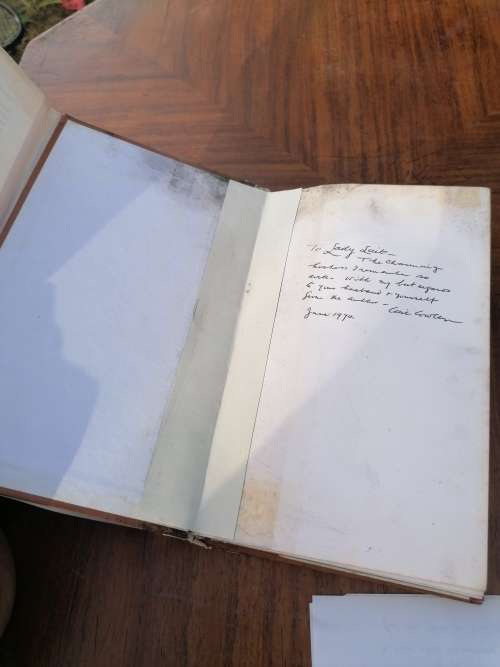 To Lady
The Charming
hostess I remember so
well. With my best regards
to your husband & yourself
from the author —
June 1972